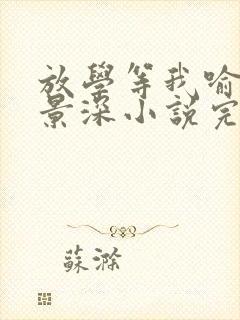 放學等我喻
景深小說完
蘇滌